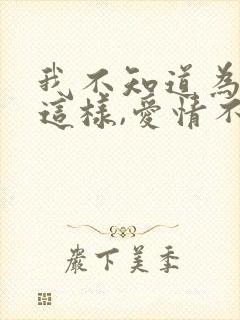 我不知道為
這樣,愛情不
嚴下美季